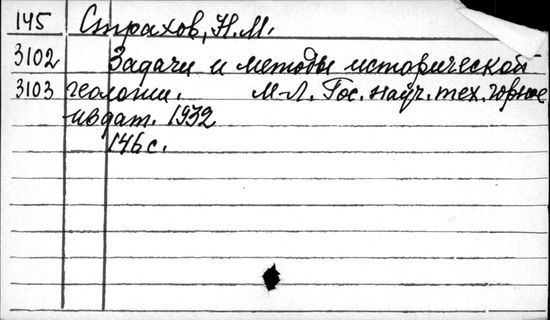 145 Страхов, Н.М.
3102 Задачи и методы исторической
3103 геологии. М-Л. Гос. науч. тех. горное
издат. 1932
146 с.